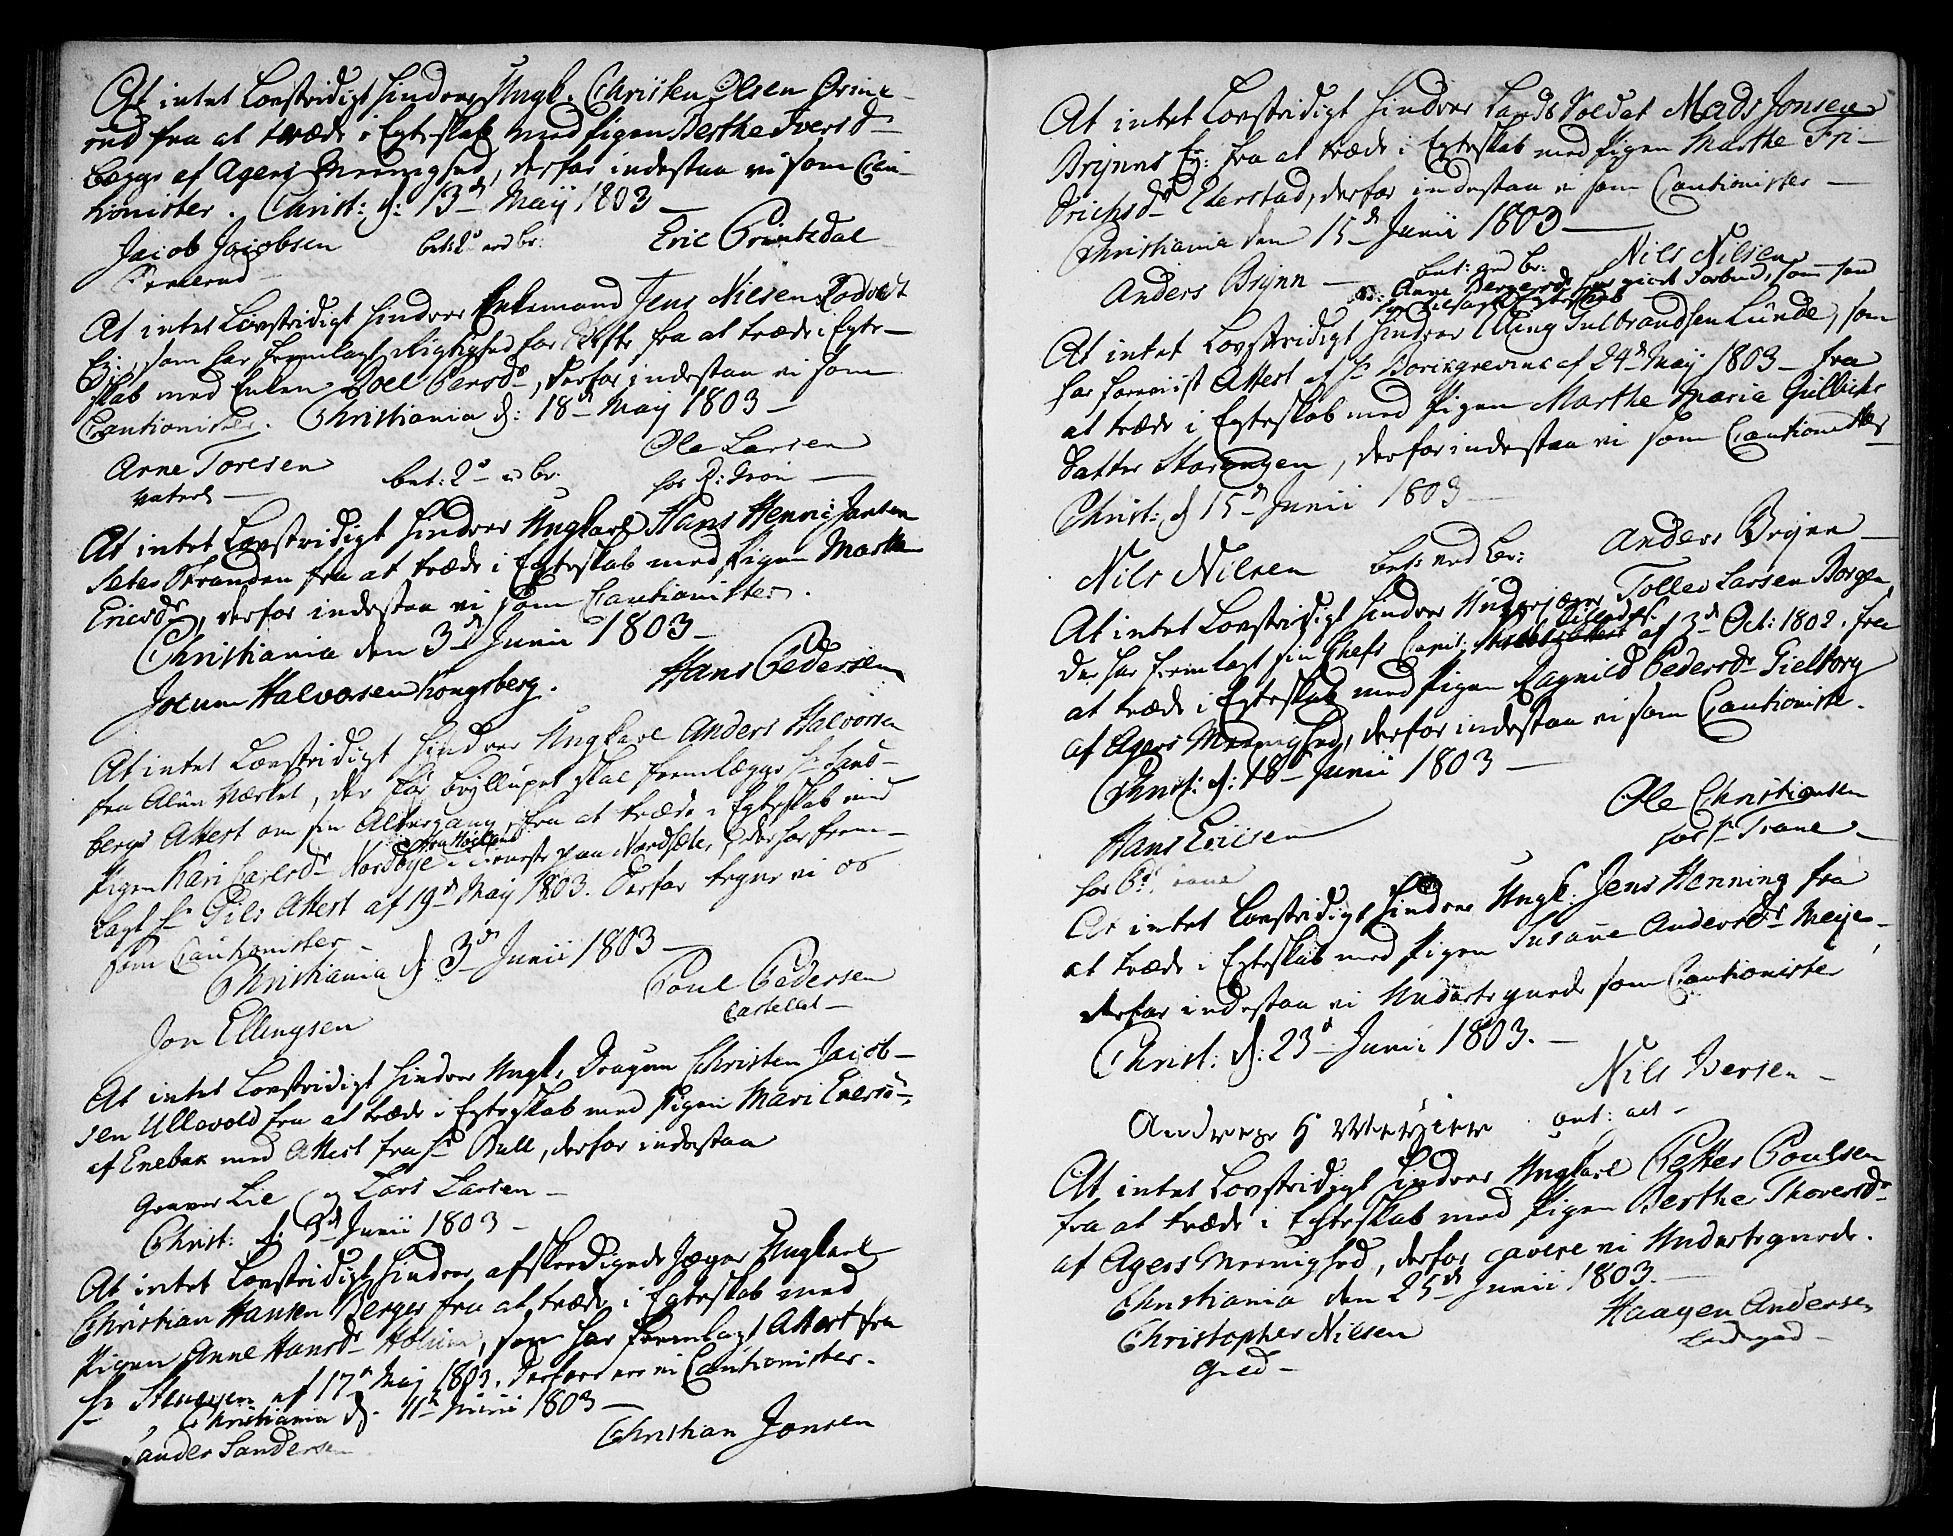 At intet Lovstridigt hindrer Ungk. Christen Olsen Grime-
rud fra at træde i Egteskab med Pigen Berthe Ivers D.
begge af Agers Menighed, derfor indestaa vi som Cau-
tionister. Christ: d: 13d Maij 1803 –
Jacob Jacobsen bet: 2s ved br: Eric Grintsdal
At intet Lovstridigt hindrer Enkemand Jens Nilsen Rodvedt
Ej:, som har fremlagt Rigtighed for Skifte fra at træde i Egte-
skab med Enken Boel Persdr, derfor indestaa vi som
Cautionister. Christiania d: 18d Maij 1803 –
Arne Toresen bet: 2s – v br. Ole Larsen
for P: Grøn –
At intet Lovstridigt hindrer Ungkarl Hans Henric Jansen
Seter Stranden fra at træde i Egteskab med Pigen Marthe
Ericsdr, derfor indestaa vi som Cautionister.
Christiania den 3d Junii 1803 –
Jocum Halvorsen Kongsberg. Hans Pedersen
At intet Lovstridigt hindrer Ungkarl Anders Halvorsen
fra Alun Værket, der før Bryllupet skal fremlægge Hr Sand-
bergs Attest om sin Altergang, fra at træde i Egteskab med
Pigen Kari Carlsdr Nordbye i Tieneste paa Nordsæte, der har frem-
lagt Hr Pils Attest af 19d Maij 1803. Derfor tegne vi os
som Cautionister –
Christiania d 3d Junii 1803 –
Poul Pedersen
Castellet –
Jon Ellingsen
At intet Lovstridigt hindrer Ungk. Dragun Christen Jacob-
sen Ullevold fra at træde i Egteskab med Pigen Mari Enersd.
af Enebak med Attest fra Hr Bull, derfor indestaa
Graver Lie og Lars Larsen –
Christ: d: 3d Junii 1803 –
At intet Lovstridigt hindrer afskeedigede Jæger Ungkarl
Christian Hansen Berger fra at træde i Egteskab med
Pigen Anne Hansdr Holum, som har fremlagt Attest fra
Hr Stenersen af 17d Maij 1803. Derfore ere vi Cautionister.
Christiania d. 11d Junii 1803 –
Sander Sandersen Christian Jonsen
At intet Lovstridigt hindrer Lands Soldat Mads Jonsen
Brynns Ej: fra at træde i Egteskab med Pigen Marthe Fri-
drichsdr Eterstad, derfor indestaa vi som Cautionister –
Christiania den 15d Junii 1803 –
Anders Brynn – bet: ved br: Nils Nilsen
At intet Lovstridigt hindrer Elling Gulbrandsen Lunde, som
har foreviist Attest af Hr Borchgrevink af 24d Maij 1803 – fra
at træde i Egteskab med Pigen Marthe Maria Gullichs
Datter Storengen, derfor indestaa vi som Cautionister
Christ: d 15d Junii 1803 –
Nils Nilsen bet: ved br: Anders Brynn –
At intet Lovstridigt hindrer Underjæger Tollev Larsen Borgen,
der har fremlagt sin Chefs Capit: af 3d Oct: 1802. fra
at træde i Egteskab med Pigen Ragnild Pedersdr Gielborg
af Agers Menighed, derfor indestaa vi som Cautionister.
Christ: d: 18d Junii 1803 –
Ole Christiansen
for Hr Trane –
Hans Ericsen
At intet Lovstridigt hindrer Ungk. Jens Henning fra
at træde i Egteskab med Pigen Susane Andersdr Meije-
derfor indestaa vi Undertegnede som Cautionister
Christ: d: 23d Junii 1803. –
Nils Iversen –
Andreas H Meyier
At intet Lovstridigt hindrer Ungkarl Petter Poulsen
fra at træde i Egteskab med Pigen Berthe Thoversdr
af Agers Menighed, derfor cavere vi Undertegnede.
Christiania den 25d Junii 1803. –
Christopher Nilsen Haagen Andersen